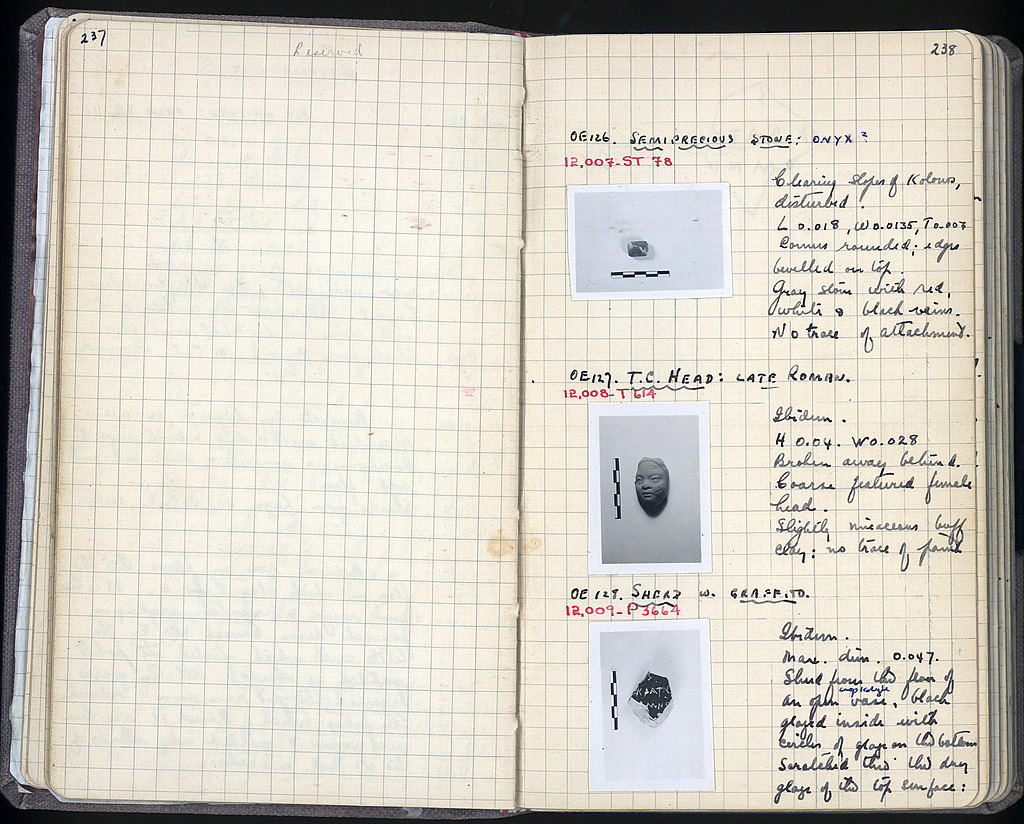 237
Reserved
238
OE 126. SEMIPRECIOUS STONE: ONYX?
12,007-ST 78
Clearing slopes of Kolonos,
disturbed.
L 0.018, W 0.0135, T 0.007
Corners rounded; edges
bevelled on top.
Gray stone with red,
white & black veins.
No trace of attachment.
OE 127. T.C. HEAD: LATE ROMAN.
12,008-T 614
Ibidem.
H 0.04. W 0.028
Broken away behind.
Coarse featured female
head.
Slightly micaceous buff
clay: no trace of paint
OE 128. SHERD W. GRAFFITO.
12,009-P 3664
Ibidem.
Max. dim. 0.047.
Sherd from the floor of
an open vase, black
glazed inside with
circles of glaze on the bottom
Scratched thro' the dry
glaze of the top surface: